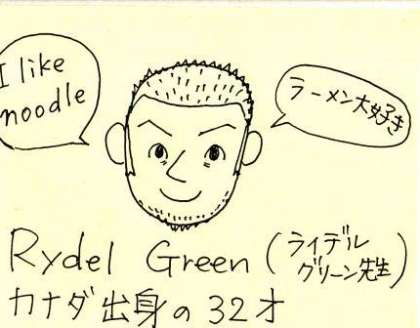 I like
noodle
ラーメン大好き
Rydel Green (ライデル
グリーン先生)
カナダ出身の32才